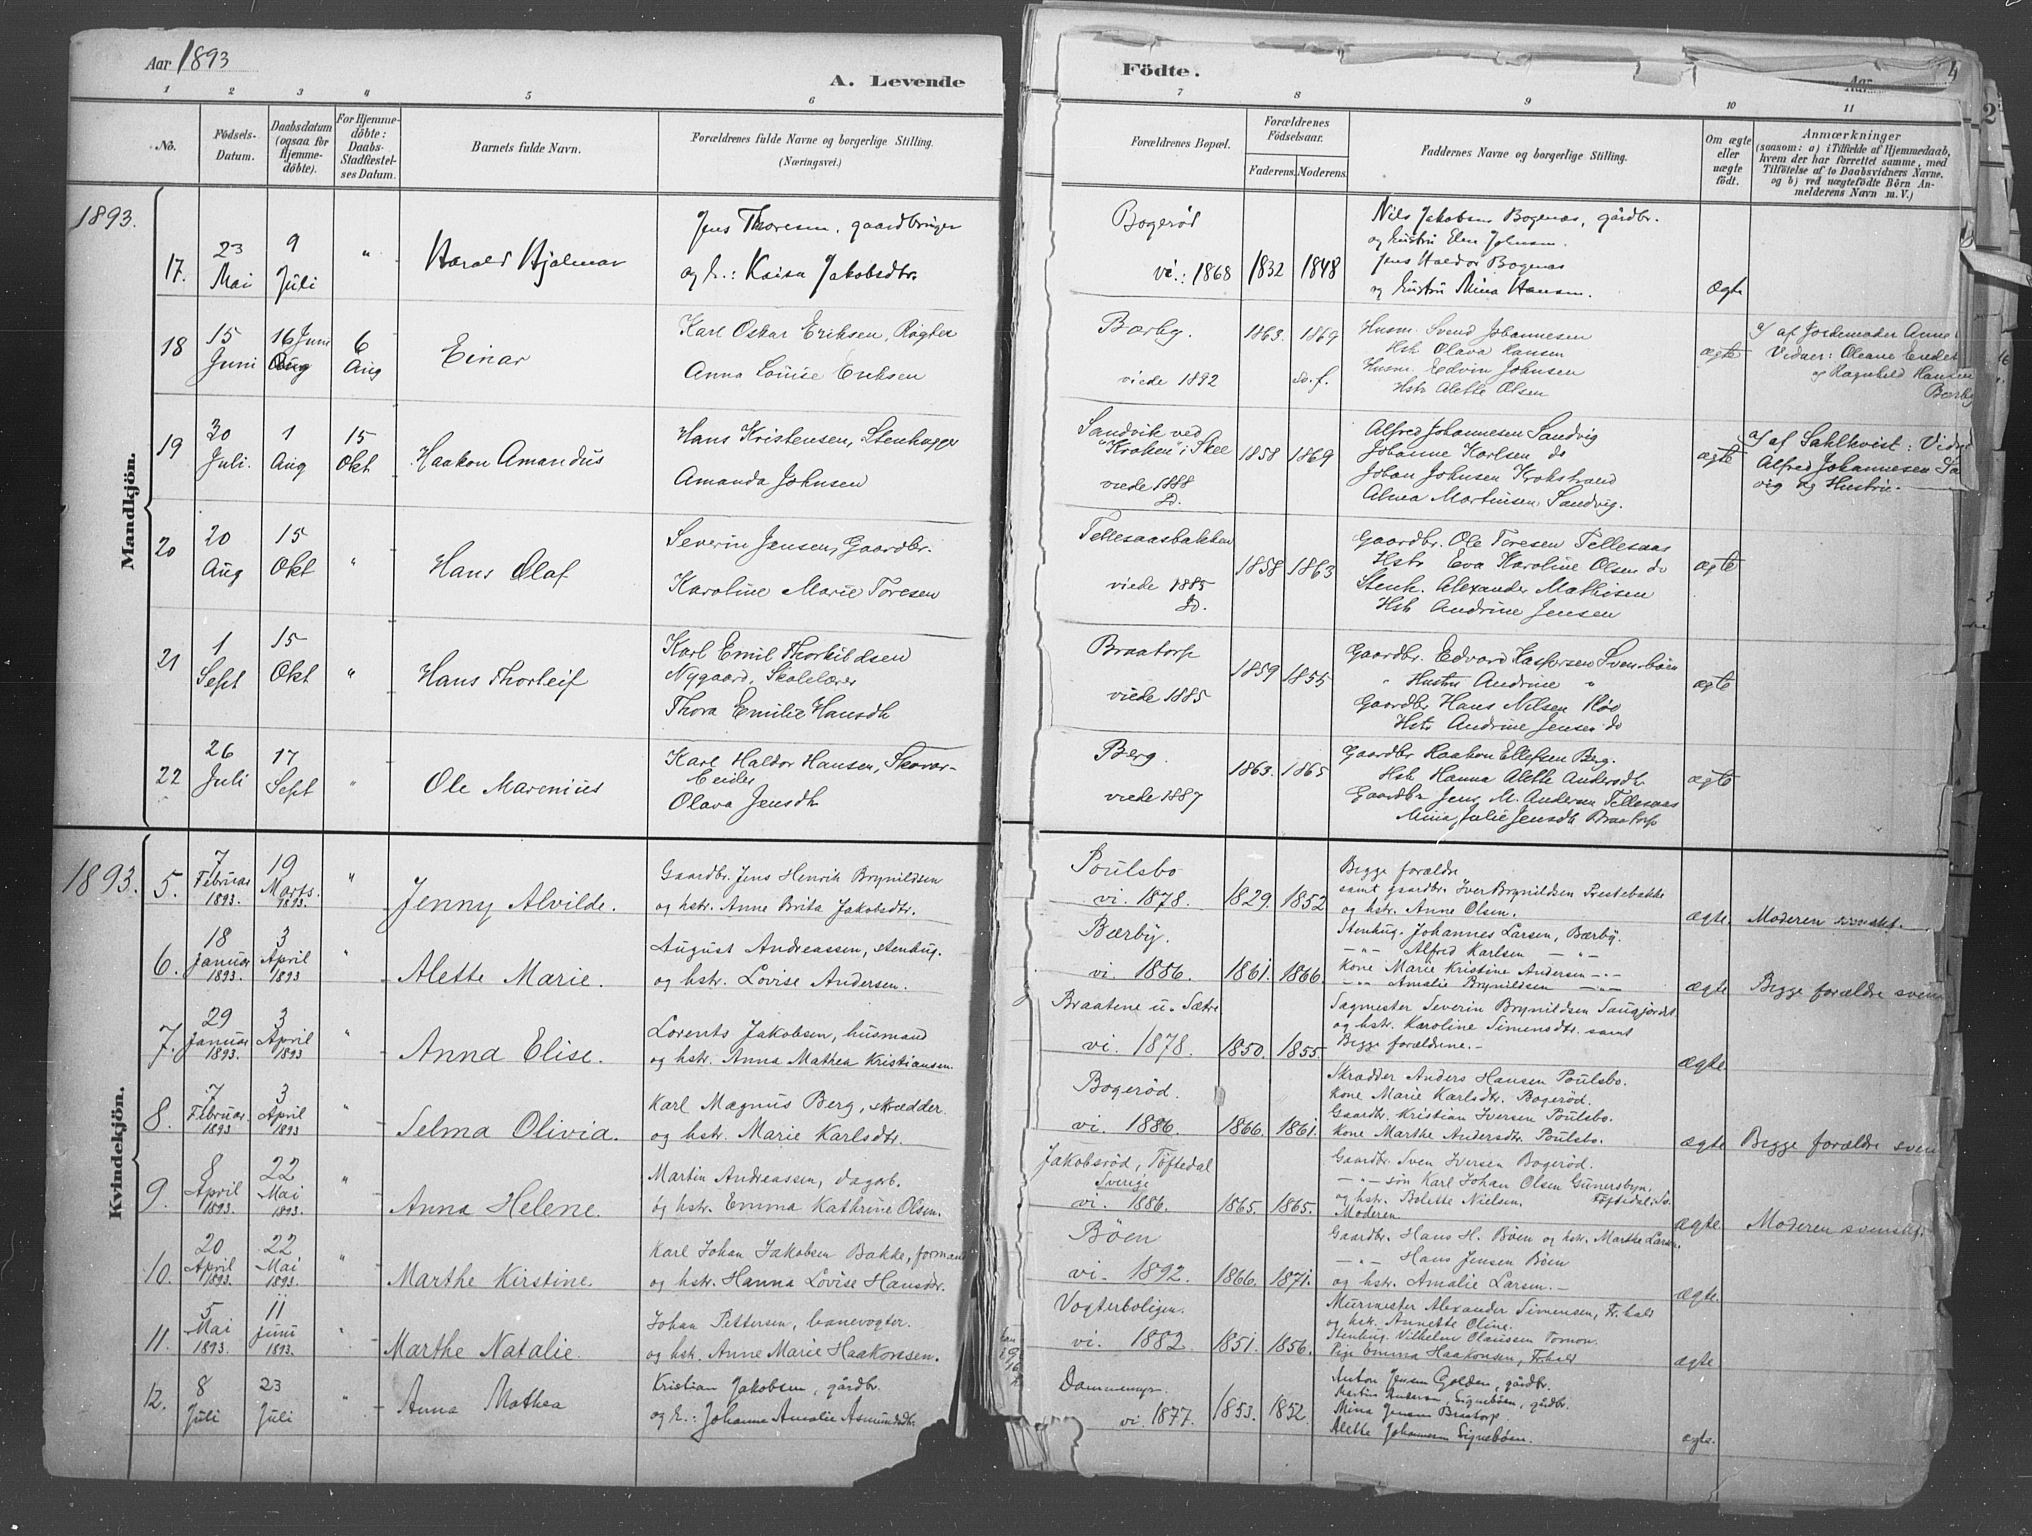 Aar 1893
A. Levende
Födte.
Aar
4
1 2 3 4 5 6 7 8 9 10 11
No.
Födsels-
Datum.
Daabsdatum
(ogsaa for
Hjemme-
döbte).
For Hjemme-
döbte:
Daabs-
Stadfæstel-
ses Datum.
Barnets fulde Navn.
Forældrenes fulde Navne og borgerlige Stilling.
(Næringsvei.)
Forældrenes Bopæl.
Forældrenes
Födselsaar.
Faderens. Moderens.
Faddernes Navne og borgerlige Stilling.
Om ægte
eller
uægte
födt.
Anmærkninger
(saasom: a) i Tilfælde af Hjemmedaab,
hvem der har forrettet samme, med
Tilföielse af to Daabsvidners Navne.
og b) ved uægtefödte Börn An-
melderens Navn m. V.)
1893.
Mandkjön.
17. 23 Mai 9 Juli " Harald Hjalmar
Jens Thoresen, gaardbruger
og h.: Kaisa Jakobsdtr.
Bogerød
vi.: 1868 1832 1848
Nils Jakobsen Bogenæs, gårdbr.
og hustru Elen Johnsen.
Jens Haldor Bogenæs
og hustru Mina Hansen.
Ægte
18 15 Juni 16 Juni Aug 6 Aug Einar
Karl Oskar Eriksen, Røgter
Anna Louise Eriksen
Bærby.
viede 1892 1863. 1869
Husm. Svend Johannesen
Hst. Olava Hansen
Husm. Edvin Johnsen
Hstr Alette Olsen
ægte
a/ af Jordemoder Anne
Vidner: Oleane
og Ragnhild Hansen
Bærby
19 30 Juli. 1 Aug 15 Okt Haakon Amandus
Hans Kristensen, Stenhugger
Amanda Johnsen
Sandvik ved
"Kroken" i Skee
viede 1888 1858 1869
D.
Alfred Johannesen Sandvig
Johanne Karlsen do
Johan Johnsen Krokstrand
Alma Martinsen Sandvig.
ægte
a/ af Sahlkvist: Vidn
Alfred Johannesen Sa
vig og Hustru.
20 20 Aug 15 Okt " Hans Olaf
Severin Jensen, Gaardbr.
Karoline Marie Toresen
Tellesaasbakken
viede 1885 1858 1863
D.
Gaardbr. Ole Toresen Tellesaas
Hstr Eva Karoline Olsen do
Stenh. Alexander Mathisen
Hst Andrine Jensen
ægte
21 1 Sept 15 Okt " Hans Thorleif
Karl Emil Thorkildsen
Nygaard, Skolelærer
Thora Emilie Hansdtr
Braatorp
viede 1885 1859 1855
Gaardbr. Edvard Kaspersen Svensbøen
" Hustru Andrine "
Gaardbr Hans Nilsen Røe
Hstr Andrine Jensen do
ægte
22 26 Juli 17 Sept " Ole Marenius
Karl Haldor Hansen, Skovar-
beider
Olava Jensdtr
Berg.
viede 1887 1863. 1865
Gaardbr Haakon Ellefsen Berg.
Hst Hanna Alette Andersdtr
Gaardbr Jens M. Andersen Tellesaas
Mina Julie Jensdtr Braatorp
ægte
1893.
Kvindekjön.
5. 7 Februar 1893. 19 Marts. 1893. " Jenny Alvilde.
Gaardbr. Jens Henrik Brynildsen
og hstr. Anne Brita Jakobsdtr.
Poulsbo
vi. 1878. 1829. 1852
Begge forældre
samt gaardbr. Iver Brynildsen Prestebakke
og hstr. Anne Olsen.
ægte. Moderen svensk.
6. 18 Januar 1893. 3 April 1893 " Alette Marie.
August Andreassen, stenhug.
og hstr. Lovise Andersen.
Bærby.
vi 1886. 1861. 1866.
Stenhug. Johannes Larsen, Bærby.
—"— Alfred Karlsen —"—
Kone Marie Kristine Andersen —"—
—"— Amalie Brynildsen —"—
ægte Begge forældre sven
7. 29 Januar 1893. 3 April 1893 " Anna Elise.
Lorents Jakobsen, husmand
og hstr. Anna Mathea Kristiansen.
Braatene u. Sætre
vi. 1878. 1850. 1855.
Sagmester Severin Brynildsen Saugjordet
og hstr. Karoline Simensdtr. samt
Begge forældrene.—
ægte
8. 7 Februar. 1893 3 April 1893 " Selma Olivia.
Karl Magnus Berg, skrædder.
og hstr. Marie Karlsdtr.
Bogerød.
vi. 1886. 1866. 1861.
Skrædder Anders Hansen Poulsbo.
Kone Marie Karlsdtr. Bogerød.
Gaardbr. Kristian Iversen Poulsbo.
Kone Marthe Andersdtr. Poulsbo.
ægte Begge forældre sven
9. 8 April 1893. 22 Mai 1893. " Anna Helene.
Martin Andreassen, dagarb.
og hstr. Emma Kathrine Olsen.
Jakobsrød, Töftedal
Sverige
vi. 1886. 1865. 1865.
Gaardbr. Sven Iversen Bogerød.
—"— søn Karl Johan Olsen Gunersbyn,
og hstr. Bolette Nielsen.
Moderen
ægte Moderen svensk.
10. 20 April 1893. 22 Mai 1893. " Marthe Kirstine.
Karl Johan Jakobsen Bakke, formand
og hstr. Hanna Lovise Hansdtr.
Bøen
vi. 1892. 1866. 1871.
Gaardbr. Hans H. Bøen og hstr. Marthe Larsen.
—"— Hans Jensen Bøen
og hstr. Amalie Larsen.—
ægte.
11. 5 Mai 1893. 11 Juni 1893. " Marthe Natalie.
Johan Pettersen, banevogter
og hstr. Anne Marie Haakonsen.
Vogterboligen.
vi. 1882. 1851. 1856.
Murmester Alexander Simensen, Fr.hald
og hstr. Annette Oline.
Stenhug. Vilhelm Olaussen Tornon.
Pige Emma Haakonsen, Fr.hald
ægte
12. 8 Juli 23 Juli " Anna Mathea
Kristian Jakobsen, gårdbr.
og h.: Johanne Amalie Asmundsdtr.
Dammemyr.
vi. 1877. 1853. 1852.
Anton Jensen Golden, gårdbr.
Martin Andersen, Signebøen, gårdbr.
Mina Jensen Braatorp
Alette Johannesen Signebøen.
ægte.